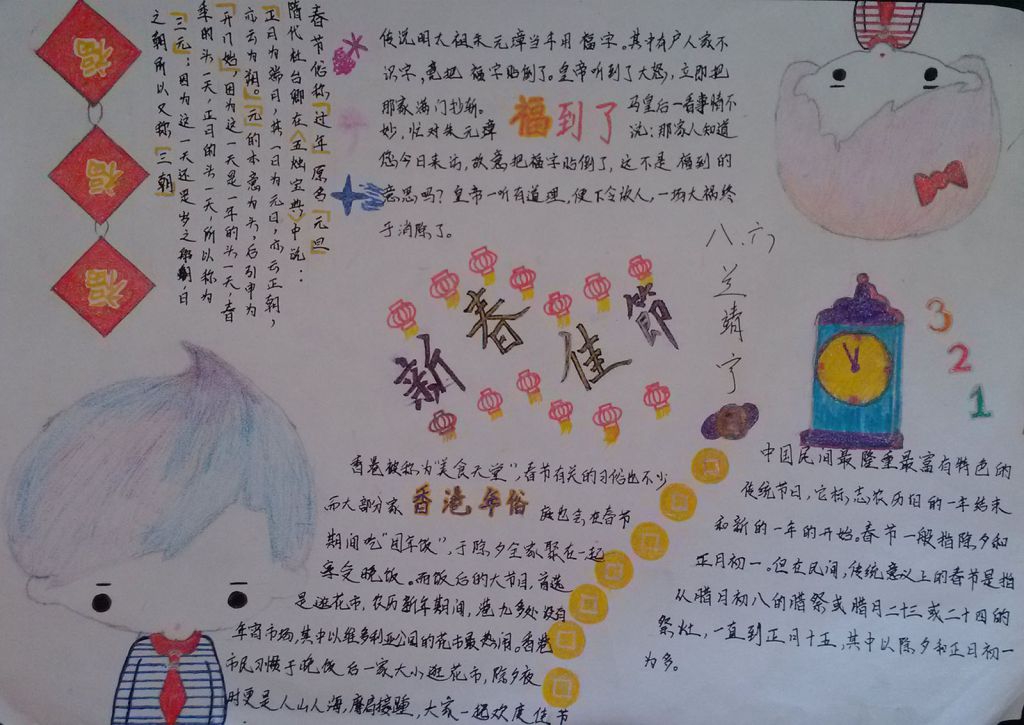 福
福
福
春节俗称「过年」原名「元旦」
隋代杜台卿在《五烛宝典》中说：
「正月为端月，其一日为元日，亦云正朝，
亦云为朔。」元的本意为头，后引申为
「开始」，因为这一天是一年的头一天，春
季的头一天，正月的头一天，所以称为
「三元」；因为这一天还是岁之朝，月
之朝所以又称「三朝」
传说明太祖朱元璋当年用福字。其中有户人家不
识字，竟把福字贴倒了。皇帝听到了大怒，立即把
那家满门抄斩。马皇后一看事情不
妙，忙对朱元璋说：那家人知道
福到了
您今日来访，故意把福字贴倒了，这不是福到的
意思吗？皇帝一听有道理，便下令放人，一场大祸终
于消除了。
新春佳節
八.六
兰靖宁
3
2
1
香港被称为"美食天堂"，春节有关的习俗也不少
而大部分家庭也会在春节
香港年俗
期间吃"团年饭"，于除夕全家聚在一起
享受晚饭。而饭后的大节目，首选
是逛花市，农历新年期间，港九多处设有
年宵市场，其中以维多利亚公园的花市最热闹。香港
市民习惯于晚饭后一家大小逛花市，除夕夜
时更是人山人海，摩肩接踵，大家一起欢度佳节
中国民间最隆重最富有特色的
传统节日，它标志农历旧的一年结束
和新的一年的开始。春节一般指除夕和
正月初一。但在民间，传统意义上的春节是指
从腊月初八的腊祭或腊月二十三或二十四的
祭灶，一直到正月十五，其中以除夕和正月初一
为多。